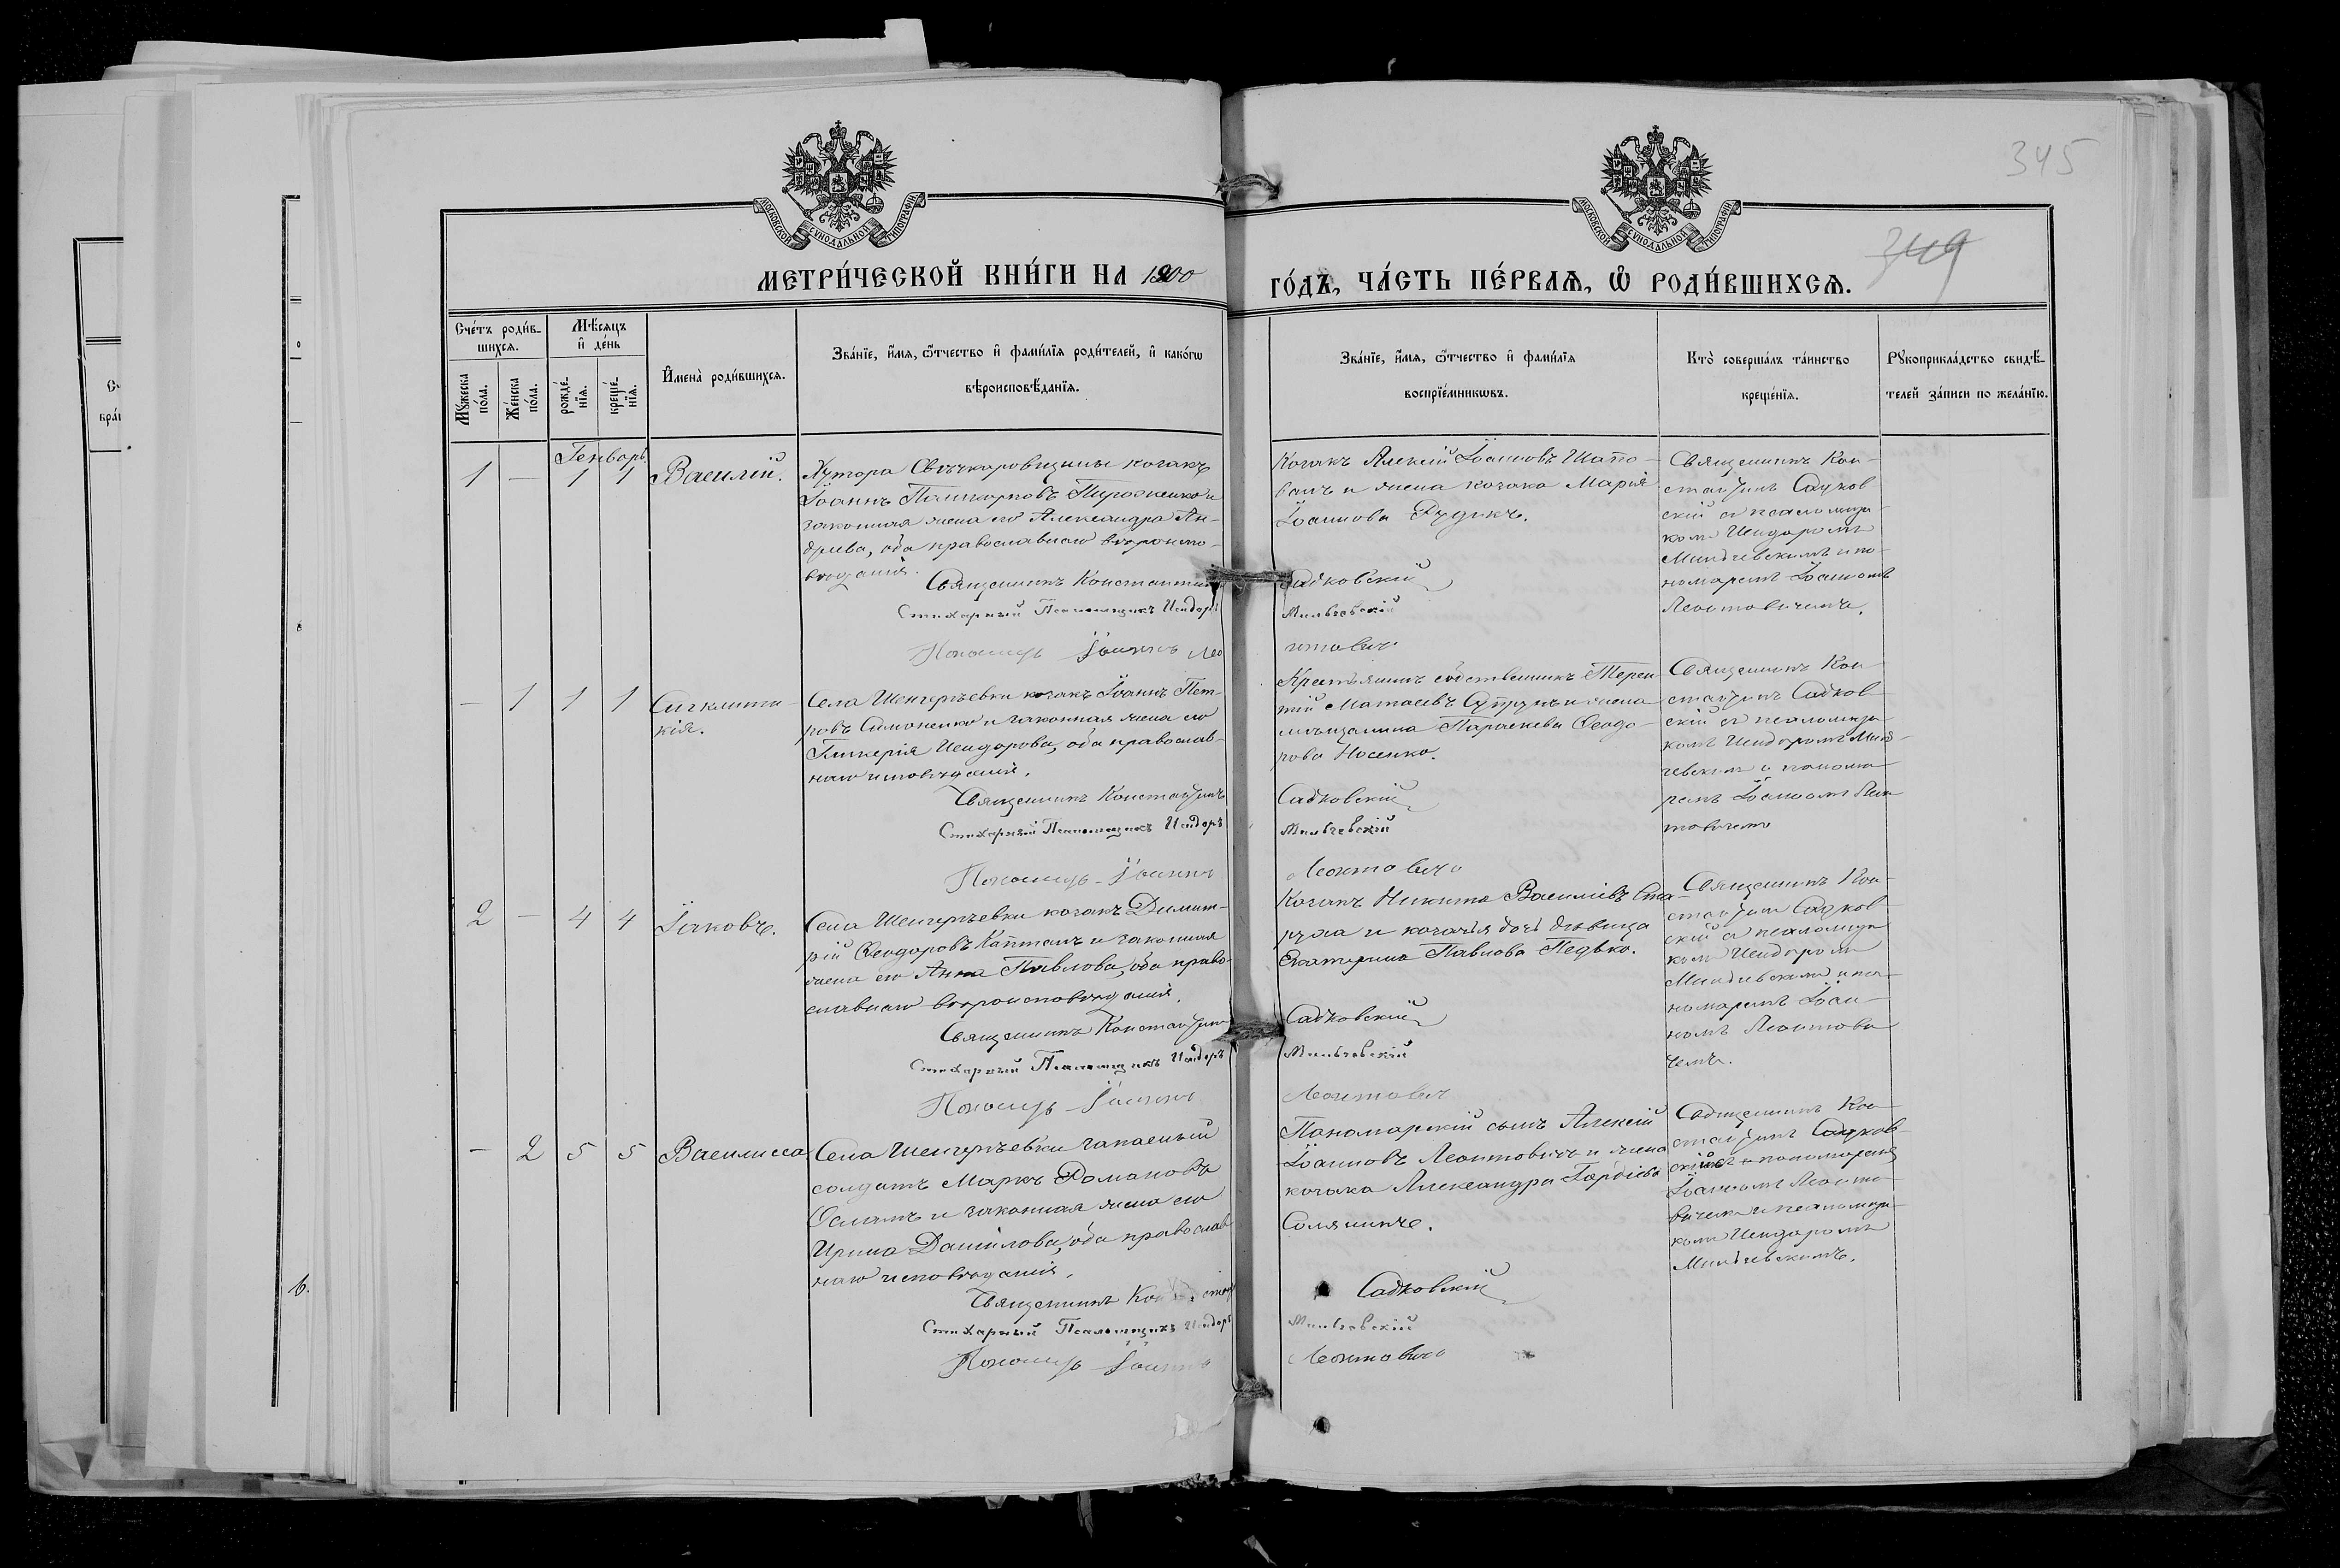 345
349
МОСКОВСКОЙ СѴНОДАЛЬНОЙ ТИПОГРАФІИ
МОСКОВСКОЙ СѴНОДАЛЬНОЙ ТИПОГРАФІИ
МЕТРИ́ЧЕСКОЙ КНИ́ГИ НА 1900
ГО́ДЪ, ЧА́СТЬ ПЕ́РВАѦ, Ѡ҆ РОДИ́ВШИХСѦ.
Сче́тъ роди́в-
шихсѧ.
Мѣ́сѧцъ
и҆ де́нь
Мꙋ́жеска по́ла.
Же́нска по́ла.
рожде́-
нїѧ.
креще́-
нїѧ.
И҆мена̀ роди́вшихсѧ.
Зва́нїе, и҆́мѧ, ѻ҆́тчество и҆ фами́лїѧ роди́телей, и҆ како́гѡ
вѣроисповѣ́данїѧ.
Зва́нїе, и҆́мѧ, ѻ҆́тчество и҆ фами́лїѧ
воспрїе́мникѡвъ.
Кто̀ соверша́лъ та́инство
креще́нїѧ.
Рꙋкоприкла́дство свидѣ́-
телей за́писи по жела́нїю.
Генварь
1 — 1 1 Василій.
Хутора Свѣчкаровщины козакъ
Іоаннъ Поликарповъ Пироженко и
законная жена его Александра Ан-
дреева, оба православнаго вѣроиспо-
вѣданія.
Священникъ Константинъ
Стихарный Псаломщикъ Исидоръ
Пономарь Іоаннъ Лео
Козакъ Алексій Іоанновъ Шапо-
валъ и жена козака Марія
Іоаннова Рудикъ.
Садковскій
Мильчевскій
нтовичъ
Священникъ Кон-
стантинъ Садков-
скій съ псаломщи-
комъ Исидоромъ
Мильчевскимъ и по-
номаремъ Іоанномъ
Леонтовичемъ.
— 1 1 1 Сигклити-
кія.
Села Шенгеріевки козакъ Іоаннъ Пет-
ровъ Симоненко и законная жена его
Гликерія Исидорова, оба православ-
наго исповѣданія.
Священникъ Константинъ
Стихарный Псаломщикъ Исидоръ
Пономарь Іоаннъ
Крестьянинъ собственникъ Терен-
тій Матѳіевъ Супрунъ и жена
мѣщанина Параскева Ѳеодо-
рова Носенко.
Садковскій
Мильчевскій
Леонтовичъ
Священникъ Кон-
стантинъ Садков-
скій съ псаломщи-
комъ Исидоромъ Миль-
чевскимъ и понома-
ремъ Іоанномъ Леон-
товичемъ
2 — 4 4 Іаковъ.
Села Шенгеріевки козакъ Димит-
рій Ѳеодоровъ Каптанъ и законная
жена его Анна Павлова, оба право-
славнаго вѣроисповѣданія.
Священникъ Константинъ
Стихарный Псаломщикъ Исидоръ
Пономарь Іоаннъ
Козакъ Никита Василіевъ Ста-
руха и козачья дочь дѣвица
Екатерина Павлова Педько.
Садковскій
Мильчевскій
Леонтовичъ
Священникъ Кон-
стантинъ Садков-
скій съ псаломщи-
комъ Исидоромъ
Мильчевскимъ и по-
номаремъ Іоан-
номъ Леонтови-
чемъ.
— 2 5 5 Василисса
Села Шенгеріевки запасный
солдатъ Маркъ Романовъ
и законная жена его
Ирина Даніилова, оба православ-
наго исповѣданія.
Священникъ
Стихарный Псаломщикъ Исидоръ
Пономарь Іоаннъ
Пономарскій сынъ Алексій
Іоанновъ Леонтовичъ и жена
козака Александра Гордіева
Солянинъ.
Садковскій
Мильчевскій
Леонтовичъ
Священникъ Кон-
стантинъ Садков-
скій съ пономаремъ
Іоанномъ Леонто-
вичемъ и псаломщи-
комъ Исидоромъ
Мильчевскимъ.